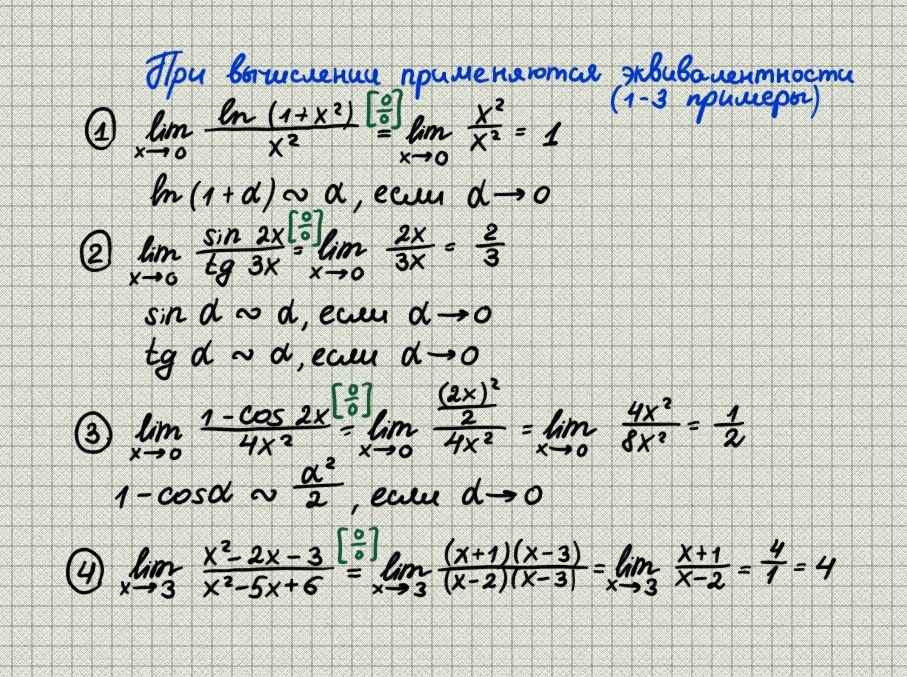 При вычислении применяются эквивалентности
(1-3 примеры)
① lim x→0 ln (1+x²)/x² = [0/0] lim x→0 x²/x² = 1
ln (1+α) ~ α, если α→0
② lim x→0 sin 2x/tg 3x = [0/0] lim x→0 2x/3x = 2/3
sin α ~ α, если α→0
tg α ~ α, если α→0
③ lim x→0 1-cos 2x/4x² = [0/0] lim x→0 (2x)²/2/4x² = lim x→0 4x²/8x² = 1/2
1-cosα ~ α²/2, если α→0
④ lim x→3 x²-2x-3/x²-5x+6 = [0/0] lim x→3 (x+1)(x-3)/(x-2)(x-3) = lim x→3 x+1/x-2 = 4/1 = 4